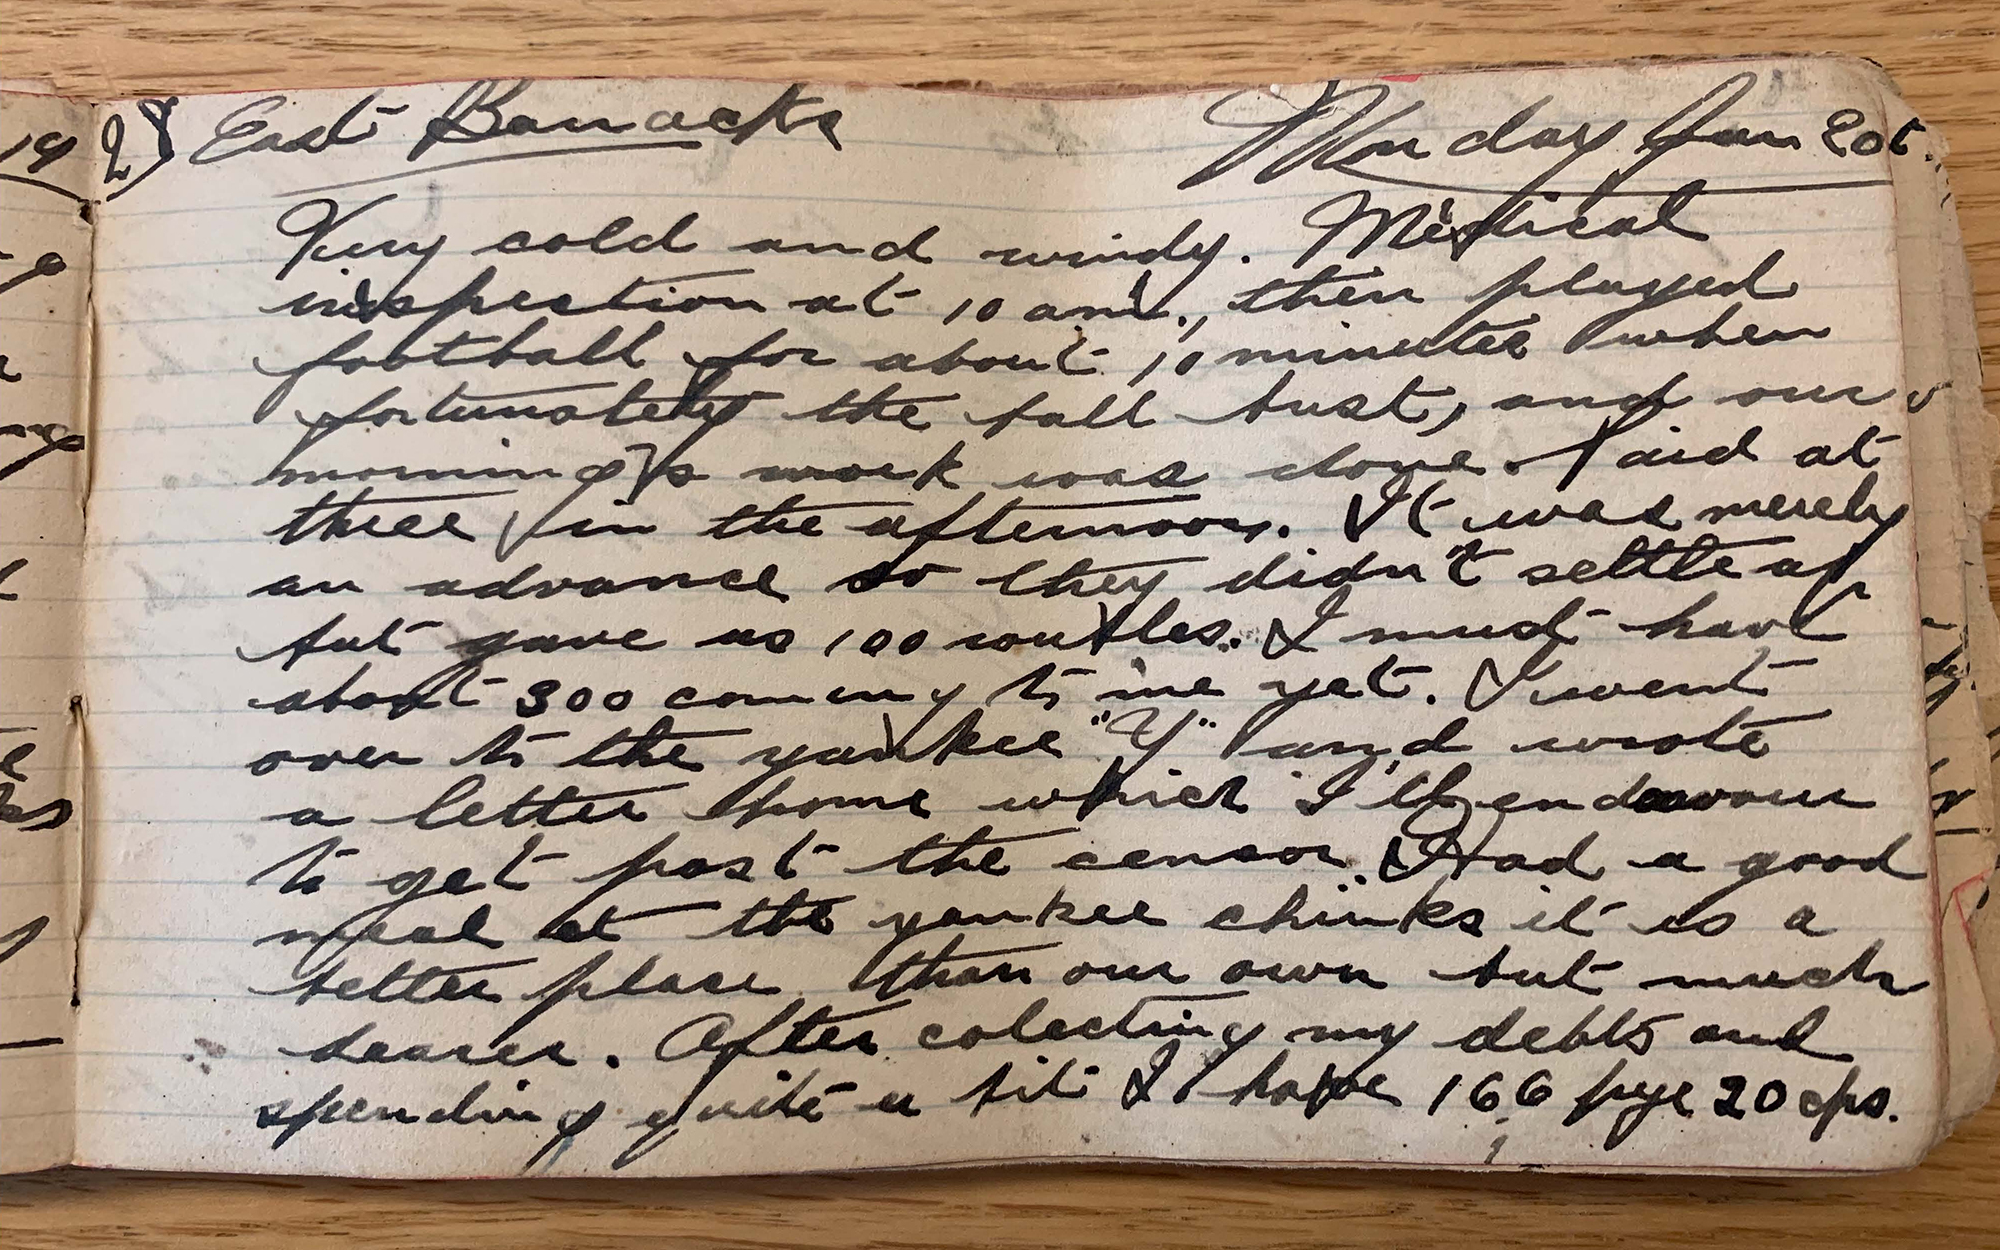 28 East Barracks Monday Jan 20t
Very cold and windy. Medical
inspection at 10 am., then played
football for about 10 minutes when
fortunately the ball bust, and our
morning's work was done. Paid at
three in the afternoon. It was merely
an advance so they didn't settle up
but gave us 100 roubles. I must have
about 300 coming to me yet. I went
over to the yankee "Y" and wrote
a letter home which I'll endeavour
to get past the censor. Had a good
meal at the yankee chinks it is a
better place than our own but much
dearer. After colecting my debts and
spending quite a bit I have 166 rye 20 cps.